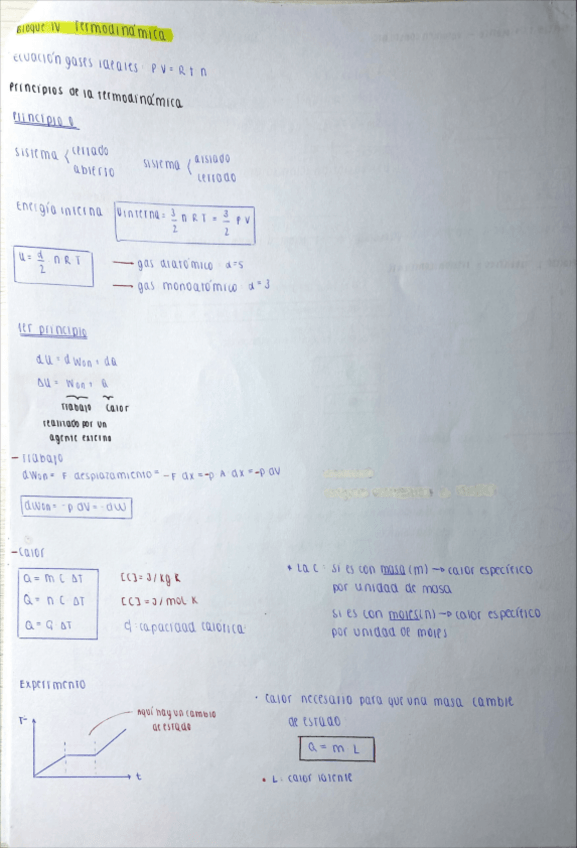 Bloque IV Termodinámica
Ecuación gases ideales: PV = R T n
Principios de la termodinámica
Principio 0
sistema { cerrado
abierto
sistema { aislado
cerrado
Energía interna U interna = 3/2 n R T = 3/2 P V
U = d/2 n R T
→ gas diatómico d=5
→ gas monoatómico d=3
1er principio
dU = d Won + dQ
ΔU = Won + Q
Trabajo Calor
realizado por un
agente externo
- Trabajo
dWon = F desplazamiento = -F dx = -p A dx = -p dV
dWon = -p dV = -dW
- Calor
Q = m C ΔT [C] = J/kg K
Q = n C ΔT [C] = J/mol K
Q = C ΔT C: capacidad calorífica
* La C: si es con masa (m) → calor específico
por unidad de masa
si es con moles (n) → calor específico
por unidad de moles
Experimento
Tª
aquí hay un cambio
de estado
t
· Calor necesario para que una masa cambie
de estado
Q = m L
• L: calor latente